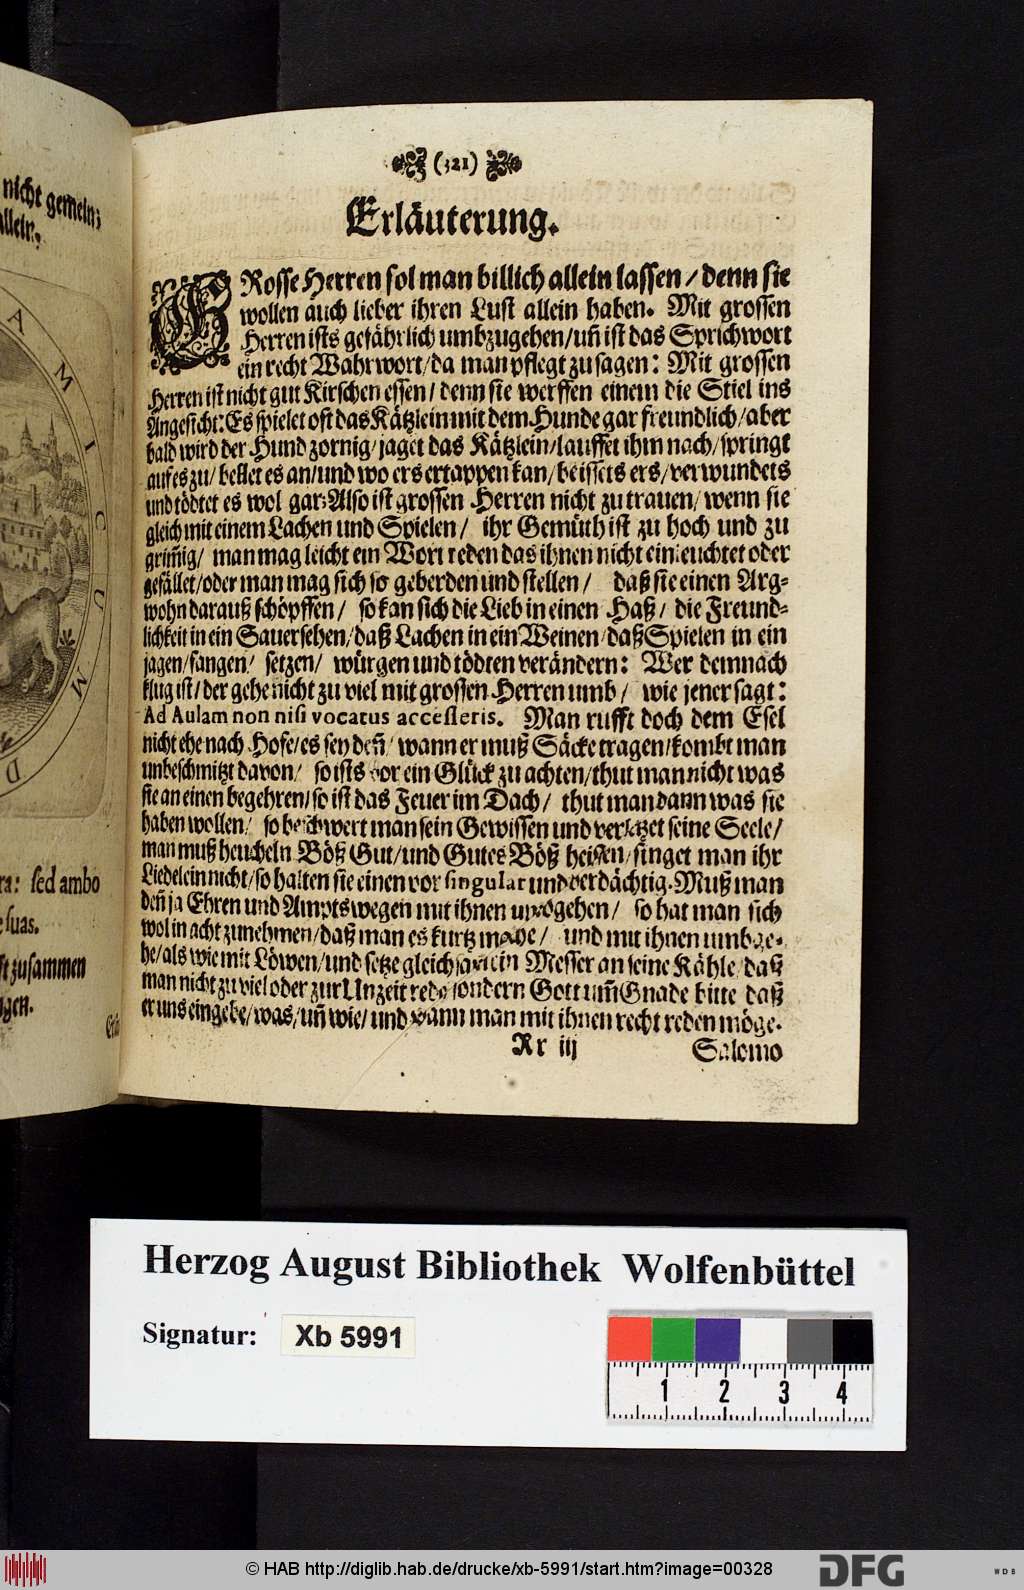 nicht gemein;
allein.
AMICUM
D
ra: sed ambo
e suas.
ft zusammen
ngen.
(321)
Erläuterung.
GRosse Herren sol man billich allein lassen / denn sie
wollen auch lieber ihren Lust allein haben. Mit grossen
Herren ists gefährlich umbzugehen/uñ ist das Sprichwort
ein recht Wahrwort/da man pflegt zu sagen: Mit grossen
Herren ist nicht gut Kirschen essen/ denn sie werffen einem die Stiel ins
Angesicht: Es spielet oft das Kätzlein mit dem Hunde gar freundlich/aber
bald wird der Hund zornig/jaget das Kätzlein/lauffet ihm nach/springt
auf es zu/ bellet es an/und wo ers ertappen kan/beissets ers/verwundets
und tödtet es wol gar: Also ist grossen Herren nicht zu trauen/ wenn sie
gleich mit einem Lachen und Spielen/ ihr Gemüth ist zu hoch und zu
grim̃ig/ man mag leicht ein Wort reden das ihnen nicht einleuchtet oder
gefället/oder man mag sich so geberden und stellen/ daß sie einen Arg-
wohn darauß schöpffen/ so kan sich die Lieb in einen Haß/ die Freund-
lichkeit in ein Sauersehen/daß Lachen in ein Weinen/daß Spielen in ein
jagen/fangen/ setzen/ würgen und tödten verändern: Wer demnach
klug ist/der gehe nicht zu viel mit grossen Herren umb/ wie jener sagt:
Ad Aulam non nisi vocatus accesseris. Man rufft doch dem Esel
nicht ehe nach Hofe/es sey deñ/ wann er muß Säcke tragen/kombt man
unbeschmitzt davon/ so ists vor ein Glück zu achten/thut man nicht was
sie an einen begehren/so ist das Feuer im Dach/ thut man dann was sie
haben wollen/ so beschwert man sein Gewissen und verletzet seine Seele/
man muß heucheln Böß Gut/und Gutes Böß heissen/singet man ihr
Liedelein nicht/so halten sie einen vor singular und verdächtig. Muß man
deñ ja Ehren und Ampts wegen mit ihnen umbgehen/ so hat man sich
wol in acht zunehmen/daß man es kurtz mache/ und mit ihnen umbge-
he/als wie mit Löwen/und setze gleichsam ein Messer an seine Kähle/daß
man nicht zu viel oder zur Unzeit rede/sondern Gott um̃ Gnade bitte daß
er uns eingebe/was/uñ wie/und wann man mit ihnen recht reden möge.
Rr iij
Salomo
Herzog August Bibliothek Wolfenbüttel
Signatur: Xb 5991
1 2 3 4
© HAB http://diglib.hab.de/drucke/xb-5991/start.htm?image=00328
DFG
WDB